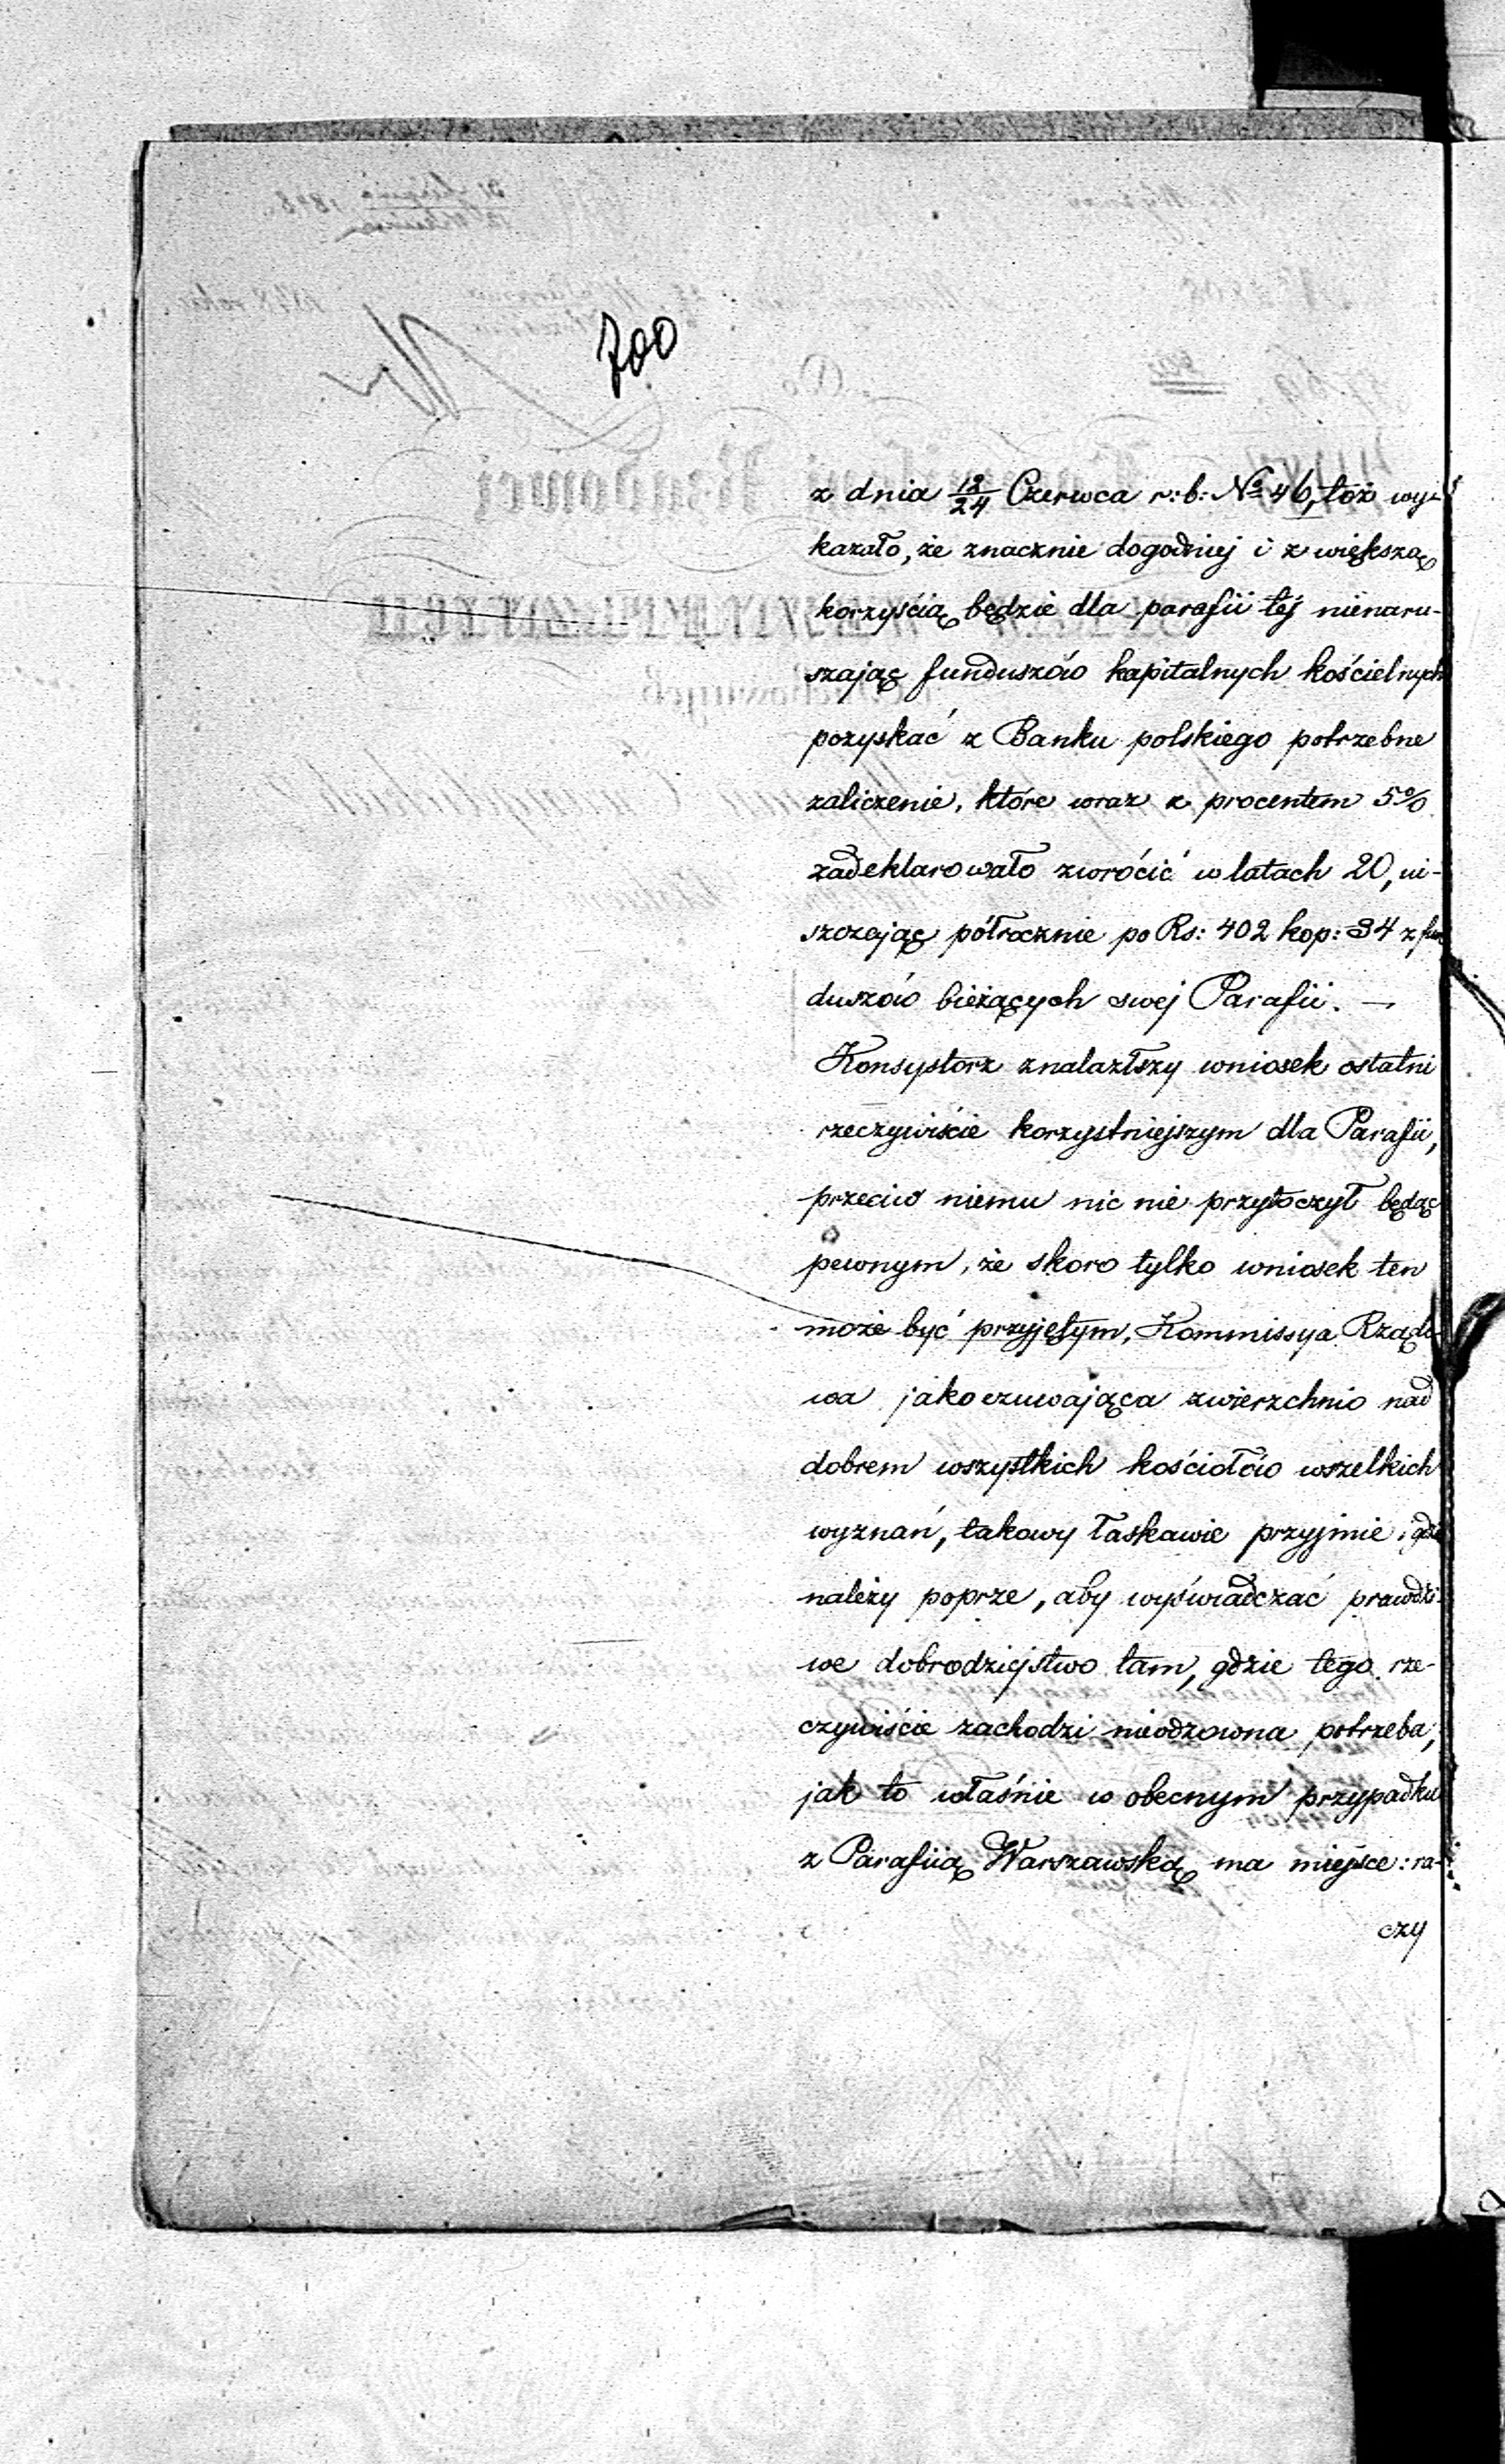 700
z dnia 12/24 Czerwca r: b: № 46, toż wy-
kazało, że znacznie dogodniej i z większą
korzyścią będzie dla parafii tej nienaru-
szając funduszów kapitalnych kościelnych
pozyskać z Banku polskiego potrzebne
zaliczenie, które wraz z procentem 5%
zadeklarowało zwrócić w latach 20, ui-
szczając półrocznie po Rs: 402 kop: 34 z fun
duszów bieżących swej Parafii. —
Konsystorz znalazłszy wniosek ostatni
rzeczywiście korzystniejszym dla Parafii,
przeciw niemu nic nie przytoczył będąc
pewnym, że skoro tylko wniosek ten
może być przyjętym, Kommissya Rządo-
wa jako czuwająca zwierzchnio nad
dobrem wszystkich kościołów wszelkich
wyznań, takowy łaskawie przyjmie, gdzie
należy poprze, aby wyświadczać prawdzi-
we dobrodziejstwo tam, gdzie tego rze-
czywiście zachodzi nieodzowna potrzeba,
jak to właśnie w obecnym przypadku
z Parafiią Warszawską ma miejsce: ra-
czy